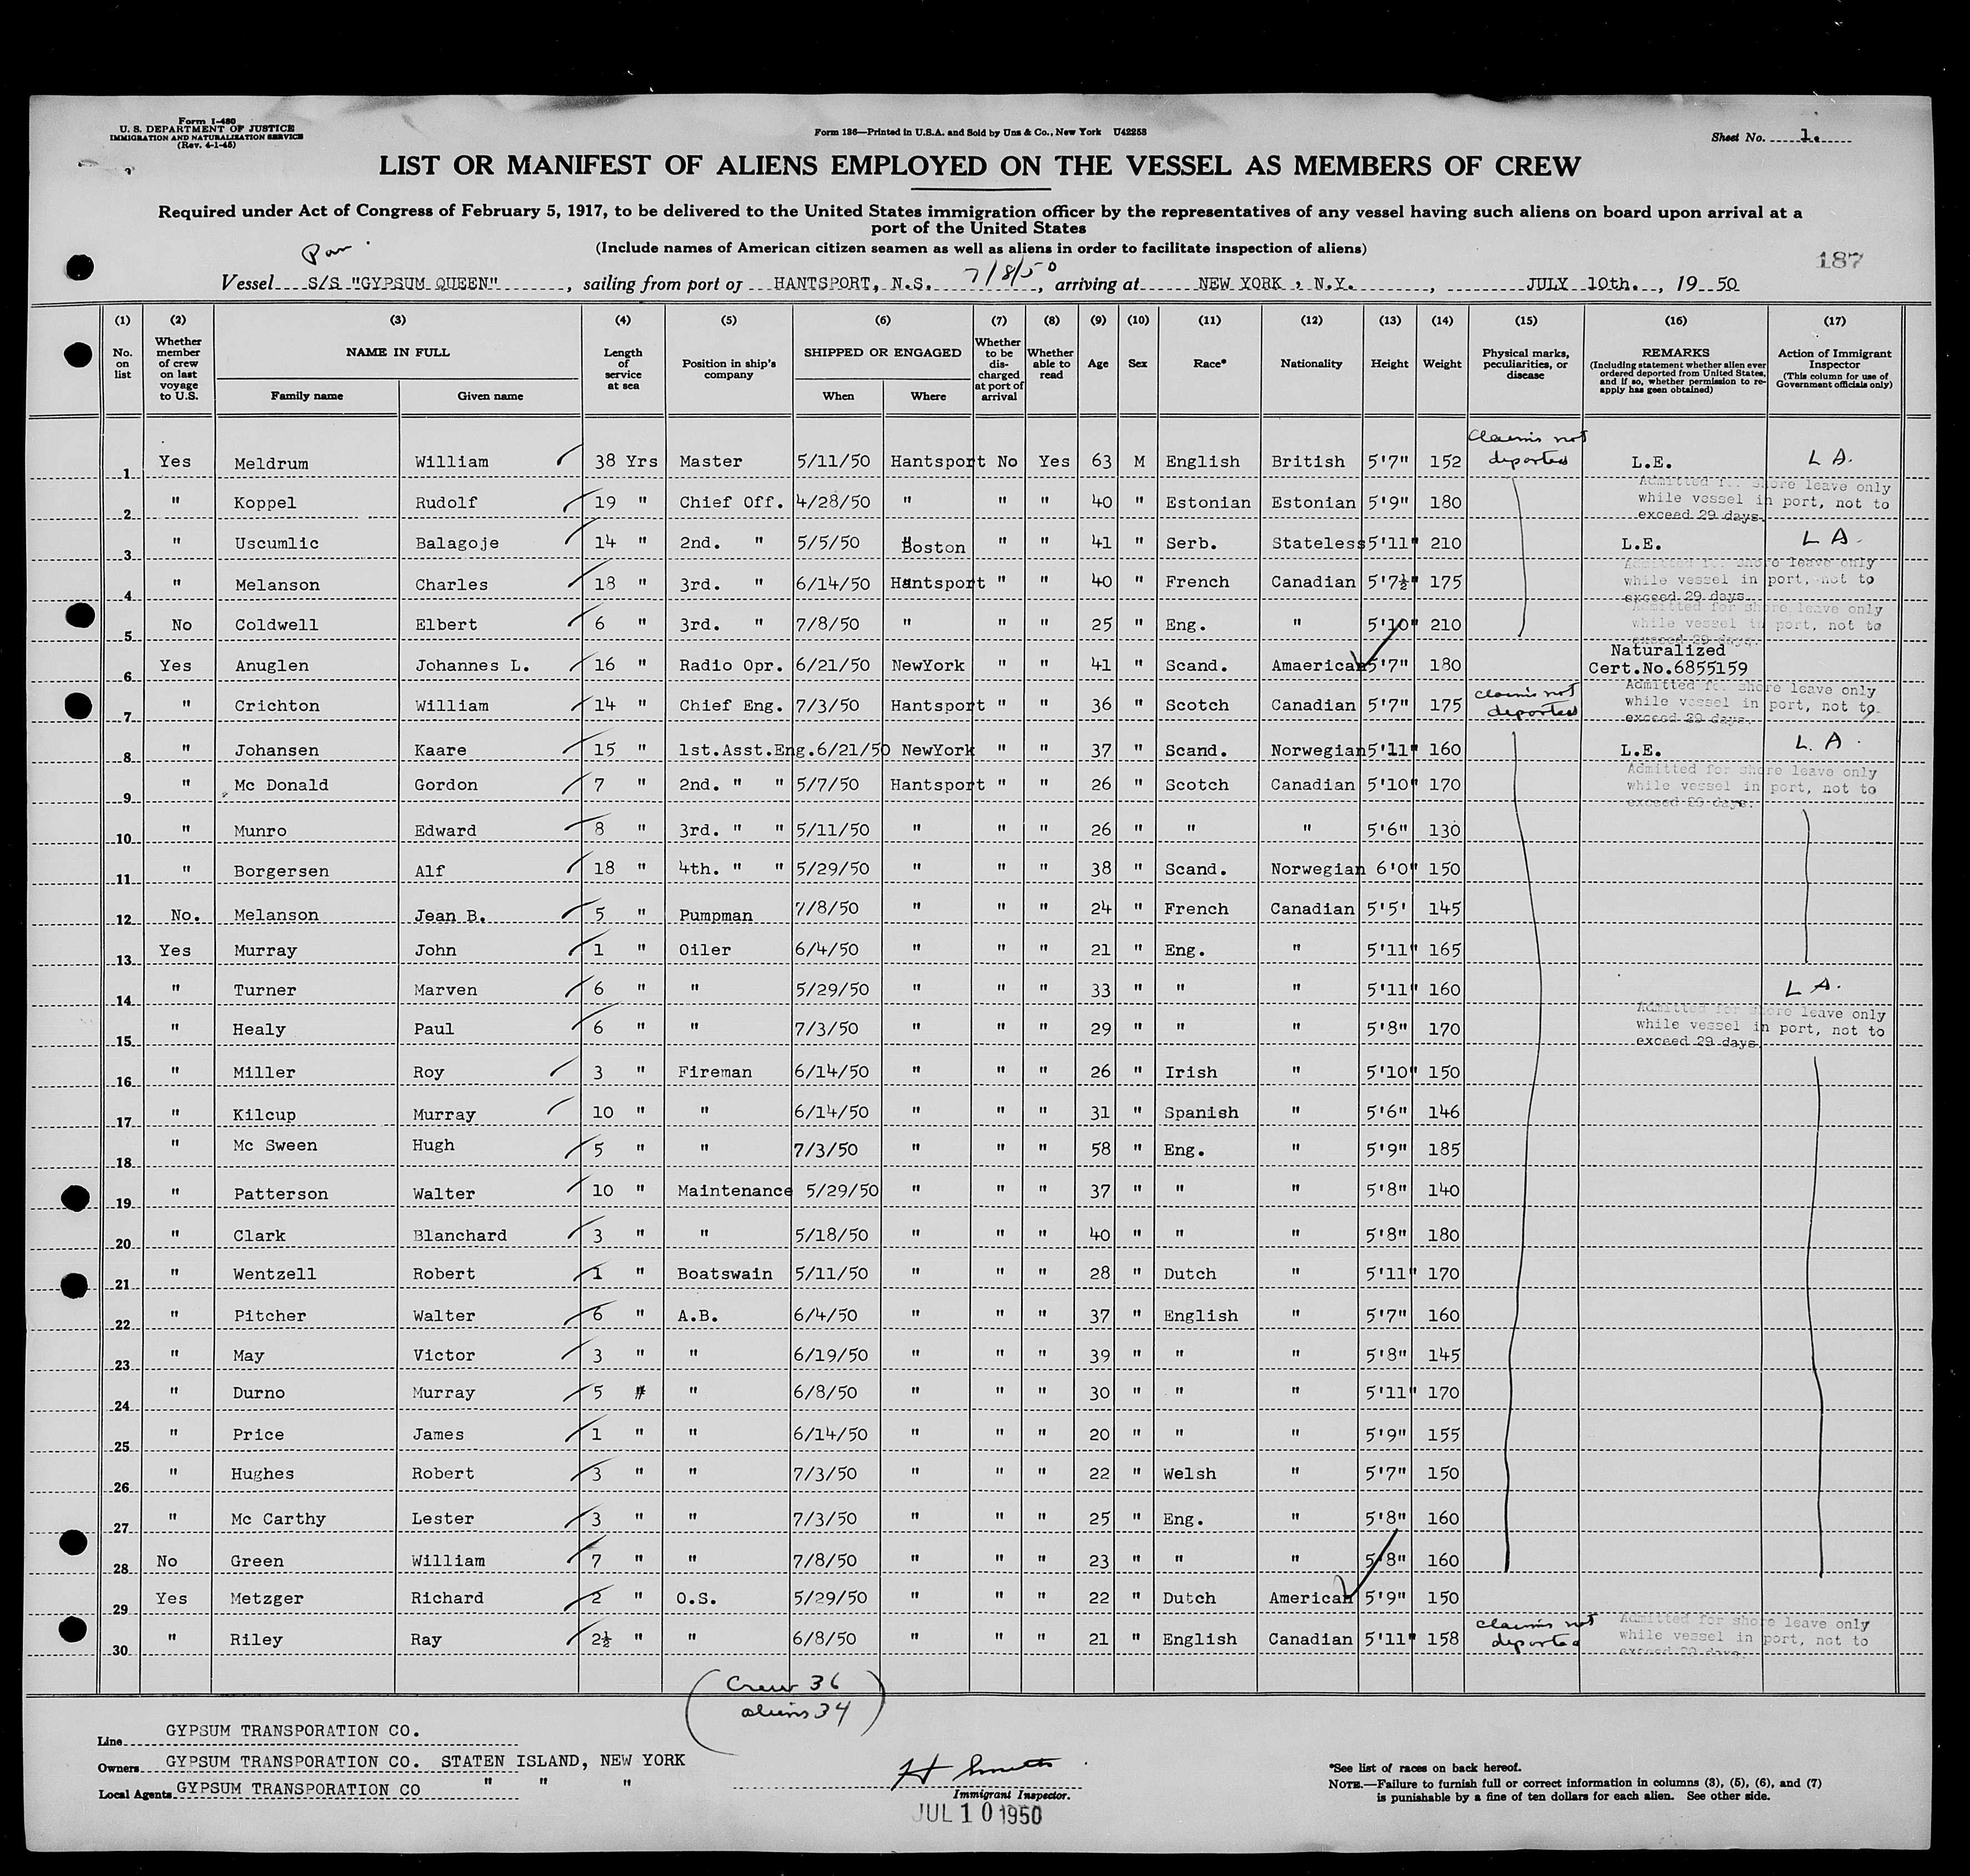 Form I-480
U. S. DEPARTMENT OF JUSTICE
IMMIGRATION AND NATURALIZATION SERVICE
(Rev. 4-1-45)
Form 186—Printed in U.S.A. and Sold by Unz & Co., New York U42258
Sheet No. 1.
LIST OR MANIFEST OF ALIENS EMPLOYED ON THE VESSEL AS MEMBERS OF CREW
Required under Act of Congress of February 5, 1917, to be delivered to the United States immigration officer by the representatives of any vessel having such aliens on board upon arrival at a
port of the United States
(Include names of American citizen seamen as well as aliens in order to facilitate inspection of aliens)
187
Pan
Vessel S/S "GYPSUM QUEEN", sailing from port of HANTSPORT, N.S. 7/8/50, arriving at NEW YORK, N.Y., JULY 10th., 19 50
(1) (2) (3) (4) (5) (6) (7) (8) (9) (10) (11) (12) (13) (14) (15) (16) (17)
No. on list
Whether member of crew on last voyage to U.S.
NAME IN FULL
Family name Given name
Length of service at sea
Position in ship's company
SHIPPED OR ENGAGED
When Where
Whether to be discharged at port of arrival
Whether able to read
Age
Sex
Race*
Nationality
Height
Weight
Physical marks, peculiarities, or disease
REMARKS
(Including statement whether alien ever ordered deported from United States, and if so, whether permission to re-apply has geen obtained)
Action of Immigrant Inspector
(This column for use of Government officials only)
1 Yes Meldrum William 38 Yrs Master 5/11/50 Hantsport No Yes 63 M English British 5'7" 152 Claims not deported L.E. L A.
2 " Koppel Rudolf 19 " Chief Off. 4/28/50 " " " 40 " Estonian Estonian 5'9" 180 Admitted for shore leave only while vessel in port, not to exceed 29 days.
3 " Uscumlic Balagoje 14 " 2nd. " 5/5/50 Boston " " 41 " Serb. Stateless 5'11" 210 L.E. L A.
4 " Melanson Charles 18 " 3rd. " 6/14/50 Hantsport " " 40 " French Canadian 5'7½" 175 Admitted for shore leave only while vessel in port, not to exceed 29 days.
5 No Coldwell Elbert 6 " 3rd. " 7/8/50 " " " 25 " Eng. " 5'10" 210 Admitted for shore leave only while vessel in port, not to exceed 29 days.
6 Yes Anuglen Johannes L. 16 " Radio Opr. 6/21/50 NewYork " " 41 " Scand. Amaerican 5'7" 180 Naturalized Cert.No.6855159
7 " Crichton William 14 " Chief Eng. 7/3/50 Hantsport " " 36 " Scotch Canadian 5'7" 175 claims not deported Admitted for shore leave only while vessel in port, not to exceed 29 days.
8 " Johansen Kaare 15 " 1st.Asst.Eng. 6/21/50 NewYork " " 37 " Scand. Norwegian 5'11" 160 L.E. L. A.
9 " Mc Donald Gordon 7 " 2nd. " " 5/7/50 Hantsport " " 26 " Scotch Canadian 5'10" 170 Admitted for shore leave only while vessel in port, not to exceed 29 days.
10 " Munro Edward 8 " 3rd. " " 5/11/50 " " " 26 " " " 5'6" 130
11 " Borgersen Alf 18 " 4th. " " 5/29/50 " " " 38 " Scand. Norwegian 6'0" 150
12 No. Melanson Jean B. 5 " Pumpman 7/8/50 " " " 24 " French Canadian 5'5' 145
13 Yes Murray John 1 " Oiler 6/4/50 " " " 21 " Eng. " 5'11" 165
14 " Turner Marven 6 " " 5/29/50 " " " 33 " " " 5'11" 160 L A.
15 " Healy Paul 6 " " 7/3/50 " " " 29 " " " 5'8" 170 Admitted for shore leave only while vessel in port, not to exceed 29 days.
16 " Miller Roy 3 " Fireman 6/14/50 " " " 26 " Irish " 5'10" 150
17 " Kilcup Murray 10 " " 6/14/50 " " " 31 " Spanish " 5'6" 146
18 " Mc Sween Hugh 5 " " 7/3/50 " " " 58 " Eng. " 5'9" 185
19 " Patterson Walter 10 " Maintenance 5/29/50 " " " 37 " " " 5'8" 140
20 " Clark Blanchard 3 " " 5/18/50 " " " 40 " " " 5'8" 180
21 " Wentzell Robert 1 " Boatswain 5/11/50 " " " 28 " Dutch " 5'11" 170
22 " Pitcher Walter 6 " A.B. 6/4/50 " " " 37 " English " 5'7" 160
23 " May Victor 3 " " 6/19/50 " " " 39 " " " 5'8" 145
24 " Durno Murray 5 " " 6/8/50 " " " 30 " " " 5'11" 170
25 " Price James 1 " " 6/14/50 " " " 20 " " " 5'9" 155
26 " Hughes Robert 3 " " 7/3/50 " " " 22 " Welsh " 5'7" 150
27 " Mc Carthy Lester 3 " " 7/3/50 " " " 25 " Eng. " 5'8" 160
28 No Green William 7 " " 7/8/50 " " " 23 " " " 5'8" 160
29 Yes Metzger Richard 2 " O.S. 5/29/50 " " " 22 " Dutch American 5'9" 150
30 " Riley Ray 2½ " " 6/8/50 " " " 21 " English Canadian 5'11" 158 claims not deported Admitted for shore leave only while vessel in port, not to exceed 29 days.
(Crew 36
aliens 34)
Line GYPSUM TRANSPORATION CO.
Owners GYPSUM TRANSPORATION CO. STATEN ISLAND, NEW YORK
Local Agents GYPSUM TRANSPORATION CO " " "
H Smith
Immigrant Inspector.
JUL 10 1950
*See list of races on back hereof.
NOTE.—Failure to furnish full or correct information in columns (3), (5), (6), and (7)
is punishable by a fine of ten dollars for each alien. See other side.